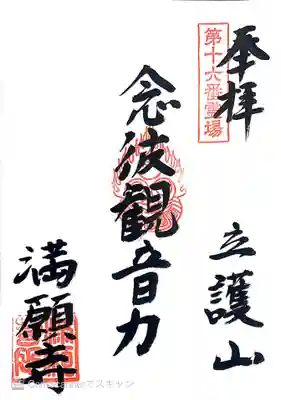 奉拝
第十六番霊場
立護山
念彼観音力
満願寺
でスキャン